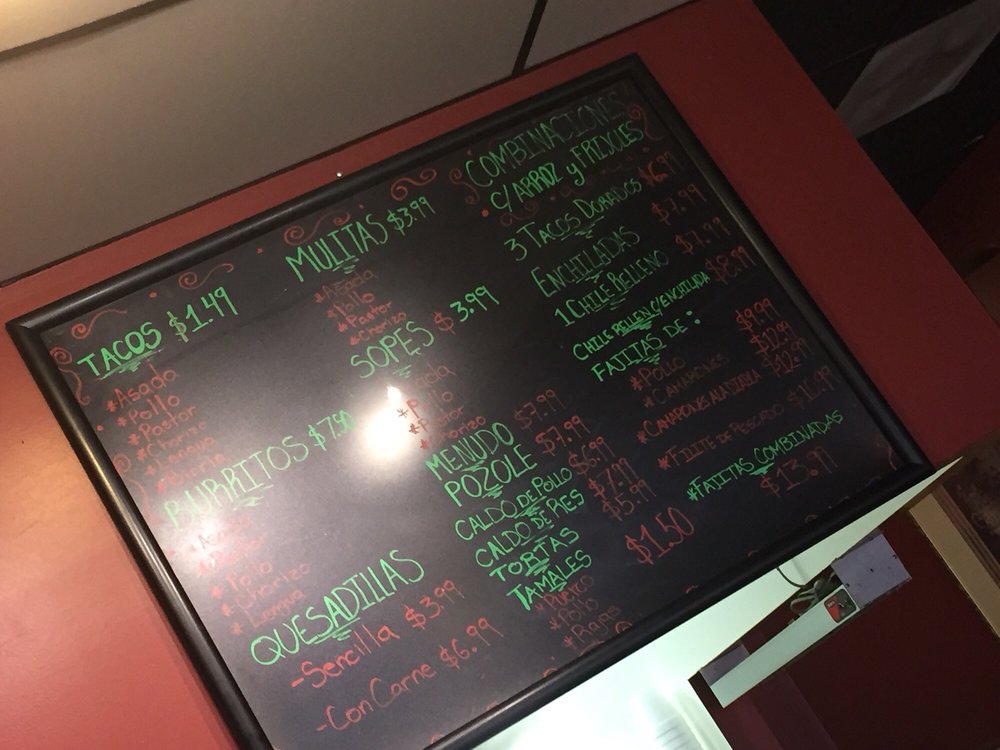 TACOS $1.49
*Asada
*Pollo
*Pastor
*Chorizo
*Lengua
BURRITOS $7.50
*Pollo
*Chorizo
*Lengua
QUESADILLAS
-Sencilla $3.99
-Con Carne $6.99
MULITAS $3.99
*Asada
*Pollo
*Pastor
*Chorizo
SOPES $3.99
*Pastor
*Chorizo
MENUDO $7.99
POZOLE $7.99
CALDO DE POLLO $6.99
CALDO DE RES
TORTAS $5.99
TAMALES $1.50
*Puerco
*Pollo
*Rajas
COMBINACIONES
C/ARROZ y FRIJOLES
3 TACOS DORADOS $6.99
ENCHILADAS $7.99
1 CHILE RELLENO $7.99
CHILE RELLEN C/ENCHILADA $8.99
FAJITAS DE:
*POLLO $9.99
*CAMARONES $12.99
*CAMARONES A LA DIABLA $12.99
*FILITE DE PESCADO
*FAJITAS COMBINADAS
$13.99